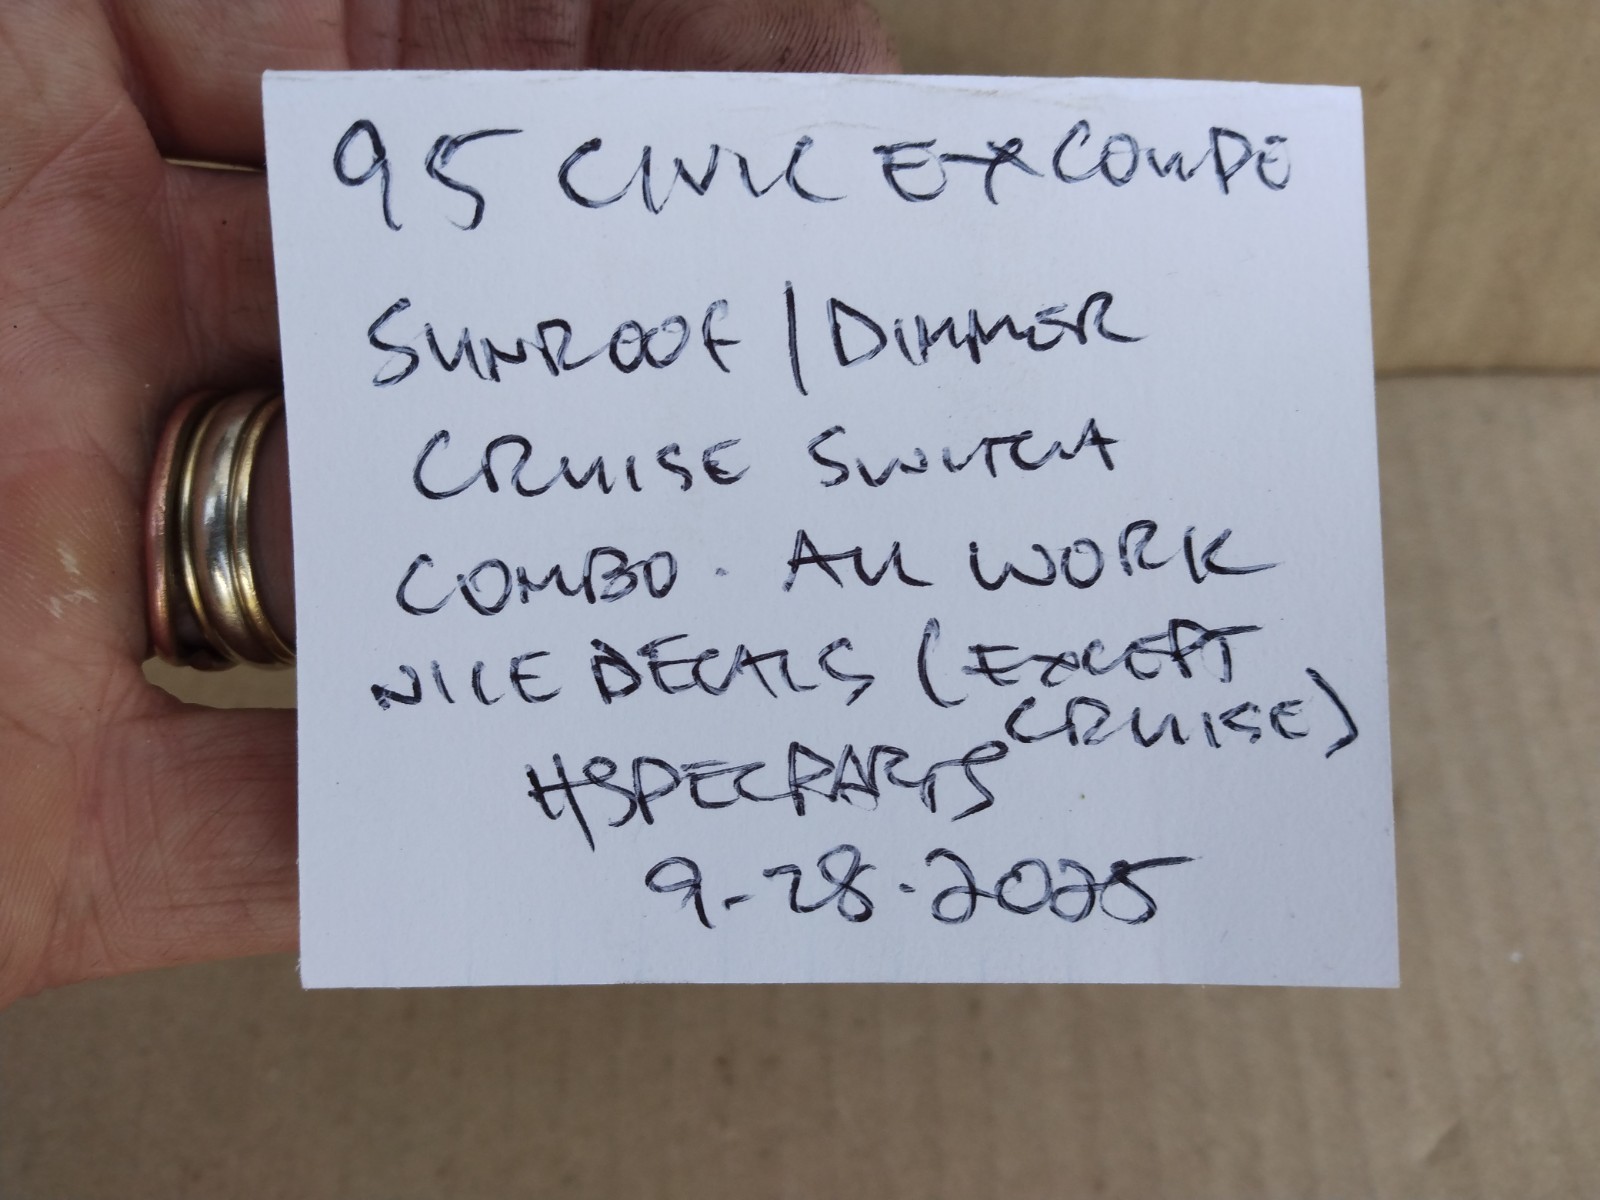 95 CIVIC EX COUPE
SUNROOF / DIMMER
CRUISE SWITCH
COMBO. ALL WORK
NICE DECALS (EXCEPT
CRUISE)
HSPECPARTS
9-28-2025